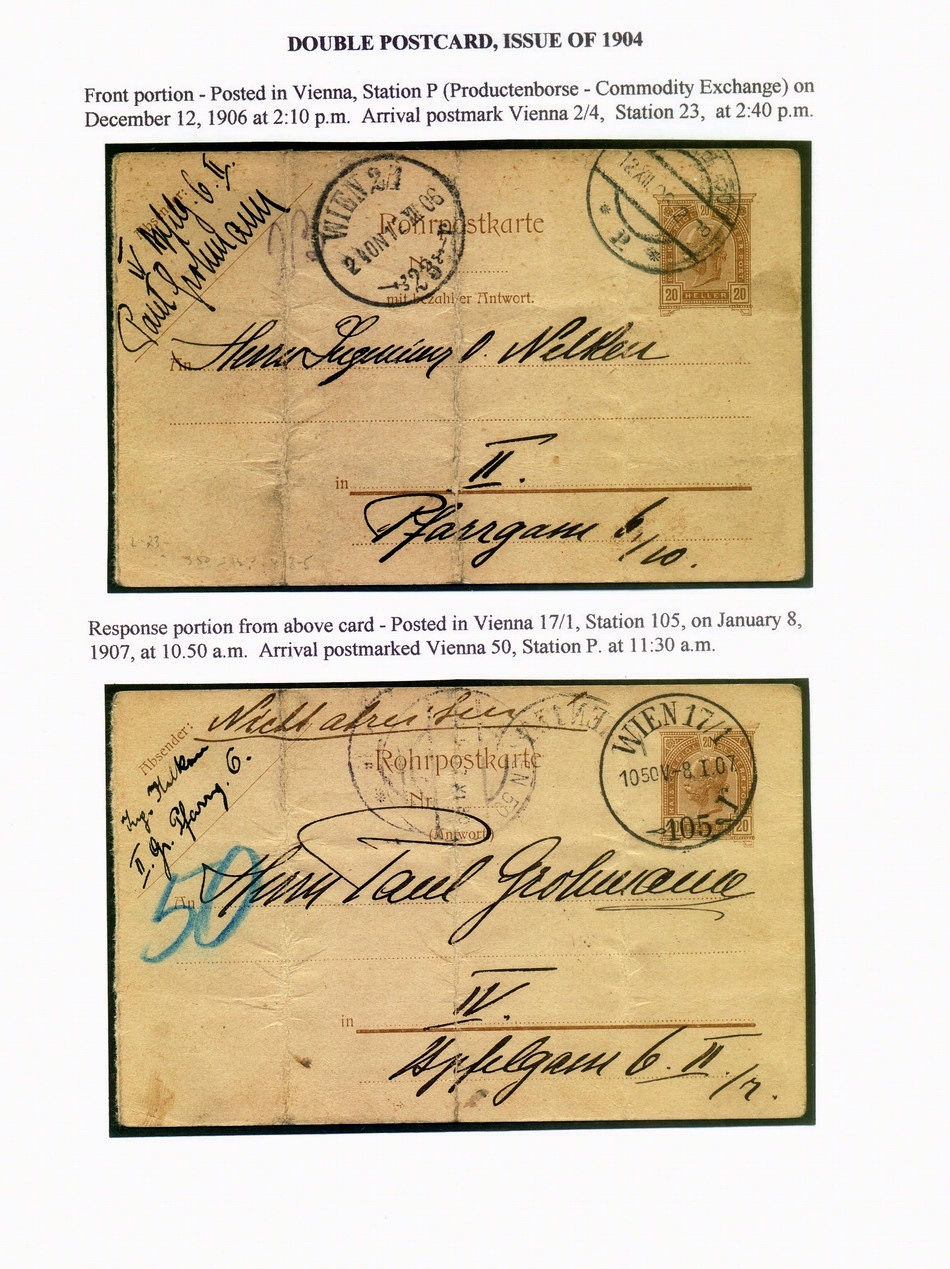 DOUBLE POSTCARD, ISSUE OF 1904
Front portion - Posted in Vienna, Station P (Productenborse - Commodity Exchange) on
December 12, 1906 at 2:10 p.m. Arrival postmark Vienna 2/4, Station 23, at 2:40 p.m.
IV
6. II.
Paul Grohmann
WIEN 2/1
2 40N
XII 06
23
12 XII
P
Rohrpostkarte
mit bezahlter Antwort.
20
20 HELLER 20
An Herrn Ingenieur O. Nelken
in II.
Pfarrgasse 6/10.
Response portion from above card - Posted in Vienna 17/1, Station 105, on January 8,
1907, at 10.50 a.m. Arrival postmarked Vienna 50, Station P. at 11:30 a.m.
Nicht
Absender:
Ing. Nelken
II. Gr. Pfarrg. 6.
Rohrpostkarte
Nr.
(Antwort)
WIEN 17/1
10 50V - 8. I. 07
105
r
20
20
50
An Herrn Paul Grohmann
in IV.
6. II/7.